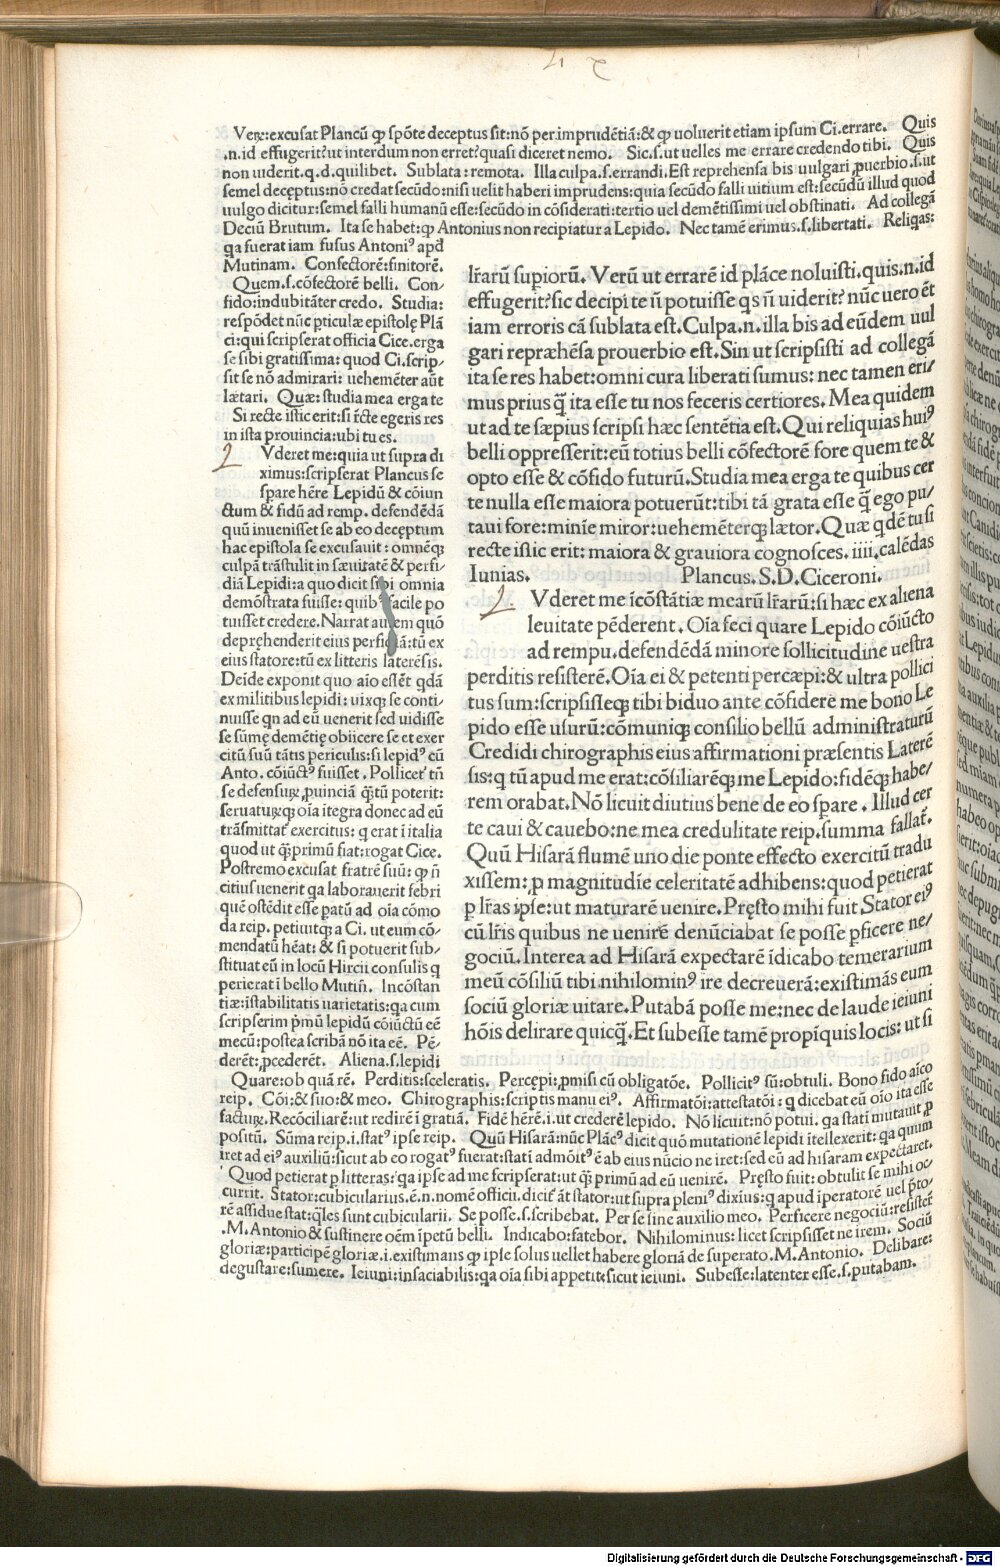 Veꝝ:excusat Plancū ꝙ spōte deceptus sit:nō per.imprudētiā:& ꝙ uoluerit etiam ipsum Ci.errare. Quis
.n.id effugerit?ut interdum non erret?quasi diceret nemo. Sic.s.ut uelles me errare credendo tibi. Quis
non uiderit.q.d.quilibet. Sublata:remota. Illa culpa.s.errandi.Est reprehensa bis uulgari ꝓuerbio.s.ut
semel decęptus:nō credat secūdo:nisi uelit haberi imprudens:quia secūdo falli uitium est:secūdū illud quod
uulgo dicitur:semel falli humanū esse:secūdo in cōsiderati:tertio uel demētissimi uel obstinati. Ad collegā
Deciū Brutum. Ita se habet:ꝙ Antonius non recipiatur a Lepido. Nec tamē erimus.s.libertati. Reliqas:
qa fuerat iam fusus Antoniꝰ apd
Mutinam. Confectorē:finitorē.
Quem.s.cōfectorē belli. Con-
fido:indubitāter credo. Studia:
respōdet nūc pticulæ epistolę Plā
ci:qui scripserat officia Cice.erga
se sibi gratissima: quod Ci.scrip-
sit se nō admirari: uehemēter aūt
lætari. Quæ:studia mea erga te
Si recte istic erit:si r̄cte egeris res
in ista prouincia:ubi tu es.
Vderet me:quia ut supra di
ximus:scripserat Plancus se
spare hēre Lepidū & cōiun
ctum & fidū ad remp. defendēdā
quū inuenisset se ab eo deceptum
hac epistola se excusauit: omnēqꝫ
culpā trāstulit in sæuitatē & perfi-
diā Lepidi:a quo dicit sibi omnia
demōstrata fuisse: quibꝰ facile po
tuisset credere. Narrat autem quō
depręhenderit eius perfidiā:tū ex
eius statore:tū ex litteris laterēsis.
Deide exponit quo aīo essēt qdā
ex militibus lepidi: uixqꝫ se conti-
nuisse qn ad eū uenerit sed uidisse
se sūmę demētię obiicere se et exer
citū suū tātis periculis:si lepidꝰ cū
Anto. cōiūctꝰ fuisset. Pollicet̄ tn̄
se defensuꝝ ꝓuinciā q̄tū poterit:
seruatuꝝqꝫ oīa itegra donec ad eū
trāsmittat̄ exercitus: q erat ī italia
quod ut q̄primū fiat:rogat Cice.
Postremo excusat fratrē suū: ꝙ n̄
citius uenerit qa laborauerit febri
quē ostēdit esse patū ad oīa cōmo
da reip. petiuitqꝫ a Ci. ut eum cō-
mendatū hēat: & si potuerit sub-
stituat eū in locū Hircii consulis q
perierat ī bello Mutiñ. Incōstan
tiæ:istabilitatis uarietatis:qa cum
scripserim ṗmū lepidū cōiūctū eē
mecū:postea scribā nō ita eē. Pē-
derēt:ꝓcederēt. Aliena.s.lepidi
lr̄arū supiorū. Verū ut errarē id plāce noluisti.quis.n.id
effugerit?sic decipi te n̄ potuisse qs n̄ uiderit? nūc uero ēt
iam erroris cā sublata est. Culpa.n.illa bis ad eūdem uul
gari repræhēsa prouerbio est. Sin ut scripsisti ad collegā
ita se res habet:omni cura liberati sumus: nec tamen eri-
mus prius q̄ ita esse tu nos feceris certiores. Mea quidem
ut ad te sæpius scripsi hæc sentētia est. Qui reliquias huiꝰ
belli oppresserit:eū totius belli cōfectorē fore quem te &
opto esse & cōfido futurū. Studia mea erga te quibus cer
te nulla esse maiora potuerūt:tibi tā grata esse q̄ ego pu-
taui fore:minīe miror:uehemēterqꝫ lætor. Quæ qdē tu si
recte istic erit: maiora & grauiora cognosces. iiii. calēdas
Iunias. Plancus.S.D.Ciceroni.
Vderet me īcōstātiæ mearū lr̄arū:si hæc ex aliena
leuitate pēderent. Oīa feci quare Lepido cōiūcto
ad rempu.defendēdā minore sollicitudine uestra
perditis resisterē. Oīa ei & petenti percæpi:& ultra pollici
tus sum:scripsisleqꝫ tibi biduo ante cōfidere me bono Le
pido esse usurū:cōmuniqꝫ consilio bellū administraturū
Credidi chirographis eius affirmationi præsentis Laterē
sis:q tū apud me erat:cōsiliarēqꝫ me Lepido:fidēqꝫ habe-
rem orabat. Nō licuit diutius bene de eo spare. Illud cer
te caui & cauebo:ne mea credulitate reip.summa fallat̄.
Quū Hisarā flumē uno die ponte effecto exercitū tradu
xissem:ꝑ magnitudīe celeritatē adhibens:quod petierat
ꝑ lr̄as ipse:ut maturarē uenire. Pręsto mihi fuit Stator eiꝰ
cū lr̄is quibus ne uenirē denūciabat se posse ꝑficere ne-
gociū. Interea ad Hisarā expectarē idicabo temerarium
meū cōsiliū tibi.nihilominꝰ ire decreuerā:existimās eum
sociū gloriæ uitare. Putabā posse me:nec de laude ieiuni
hōis delirare quicq̄. Et subesse tamē propīquis locis: ut si
Quare:ob quā rē. Perditis:sceleratis. Percępi:ꝓmisi cū obligatōe. Pollicitꝰ sū:obtuli. Bono fido aīco
reip. Cōi:& suo:& meo. Chirographis:scriptis manu eiꝰ. Affirmatōi:attestatōi: q dicebat eū oīo ita esse
factuꝝ.Recōciliarē:ut redirē i gratiā. Fidē hērē.i.ut crederē lepido. Nō licuit:nō potui.qa stati mutauit ꝓ
positū. Sūma reip.i.statꝰ ipse reip. Quū Hisarā:nūc Plācꝰ dicit quō mutationē lepidi ītellexerit: qa quum
iret ad eiꝰ auxiliū:sicut ab eo rogatꝰ fuerat:stati admōitꝰ ē ab eius nūcio ne iret:sed eū ad hisaram expectaret.
Quod petierat ꝑ litteras:qa ipse ad me scripserat:ut q̄ primū ad eū uenirē. Pręsto fuit: obtulit se mihi oc-
currit. Stator:cubicularius.ē.n.nomē officii.dicit̄ āt stator:ut supra pleniꝰ dixius:q apud iperatorē uel p̄to-
rē assidue stat:q̄les sunt cubicularii. Se posse.s.scribebat. Per se sine auxilio meo. Perficere negociū:resistēr
.M.Antonio & sustinere oēm īpetū belli. Indicabo:fatebor. Nihilominus: licet scripsisset ne irem. Sociū
gloriæ:participē gloriæ.i.existimans ꝙ ipse solus uellet habere gloriā de superato.M.Antonio. Delibare:
degustare:sumere. Ieiuni:insaciabilis:qa oīa sibi appetit:sicut ieiuni. Subesse:latenter esse.s.putabam.
Digitalisierung gefördert durch die Deutsche Forschungsgemeinschaft - DFG